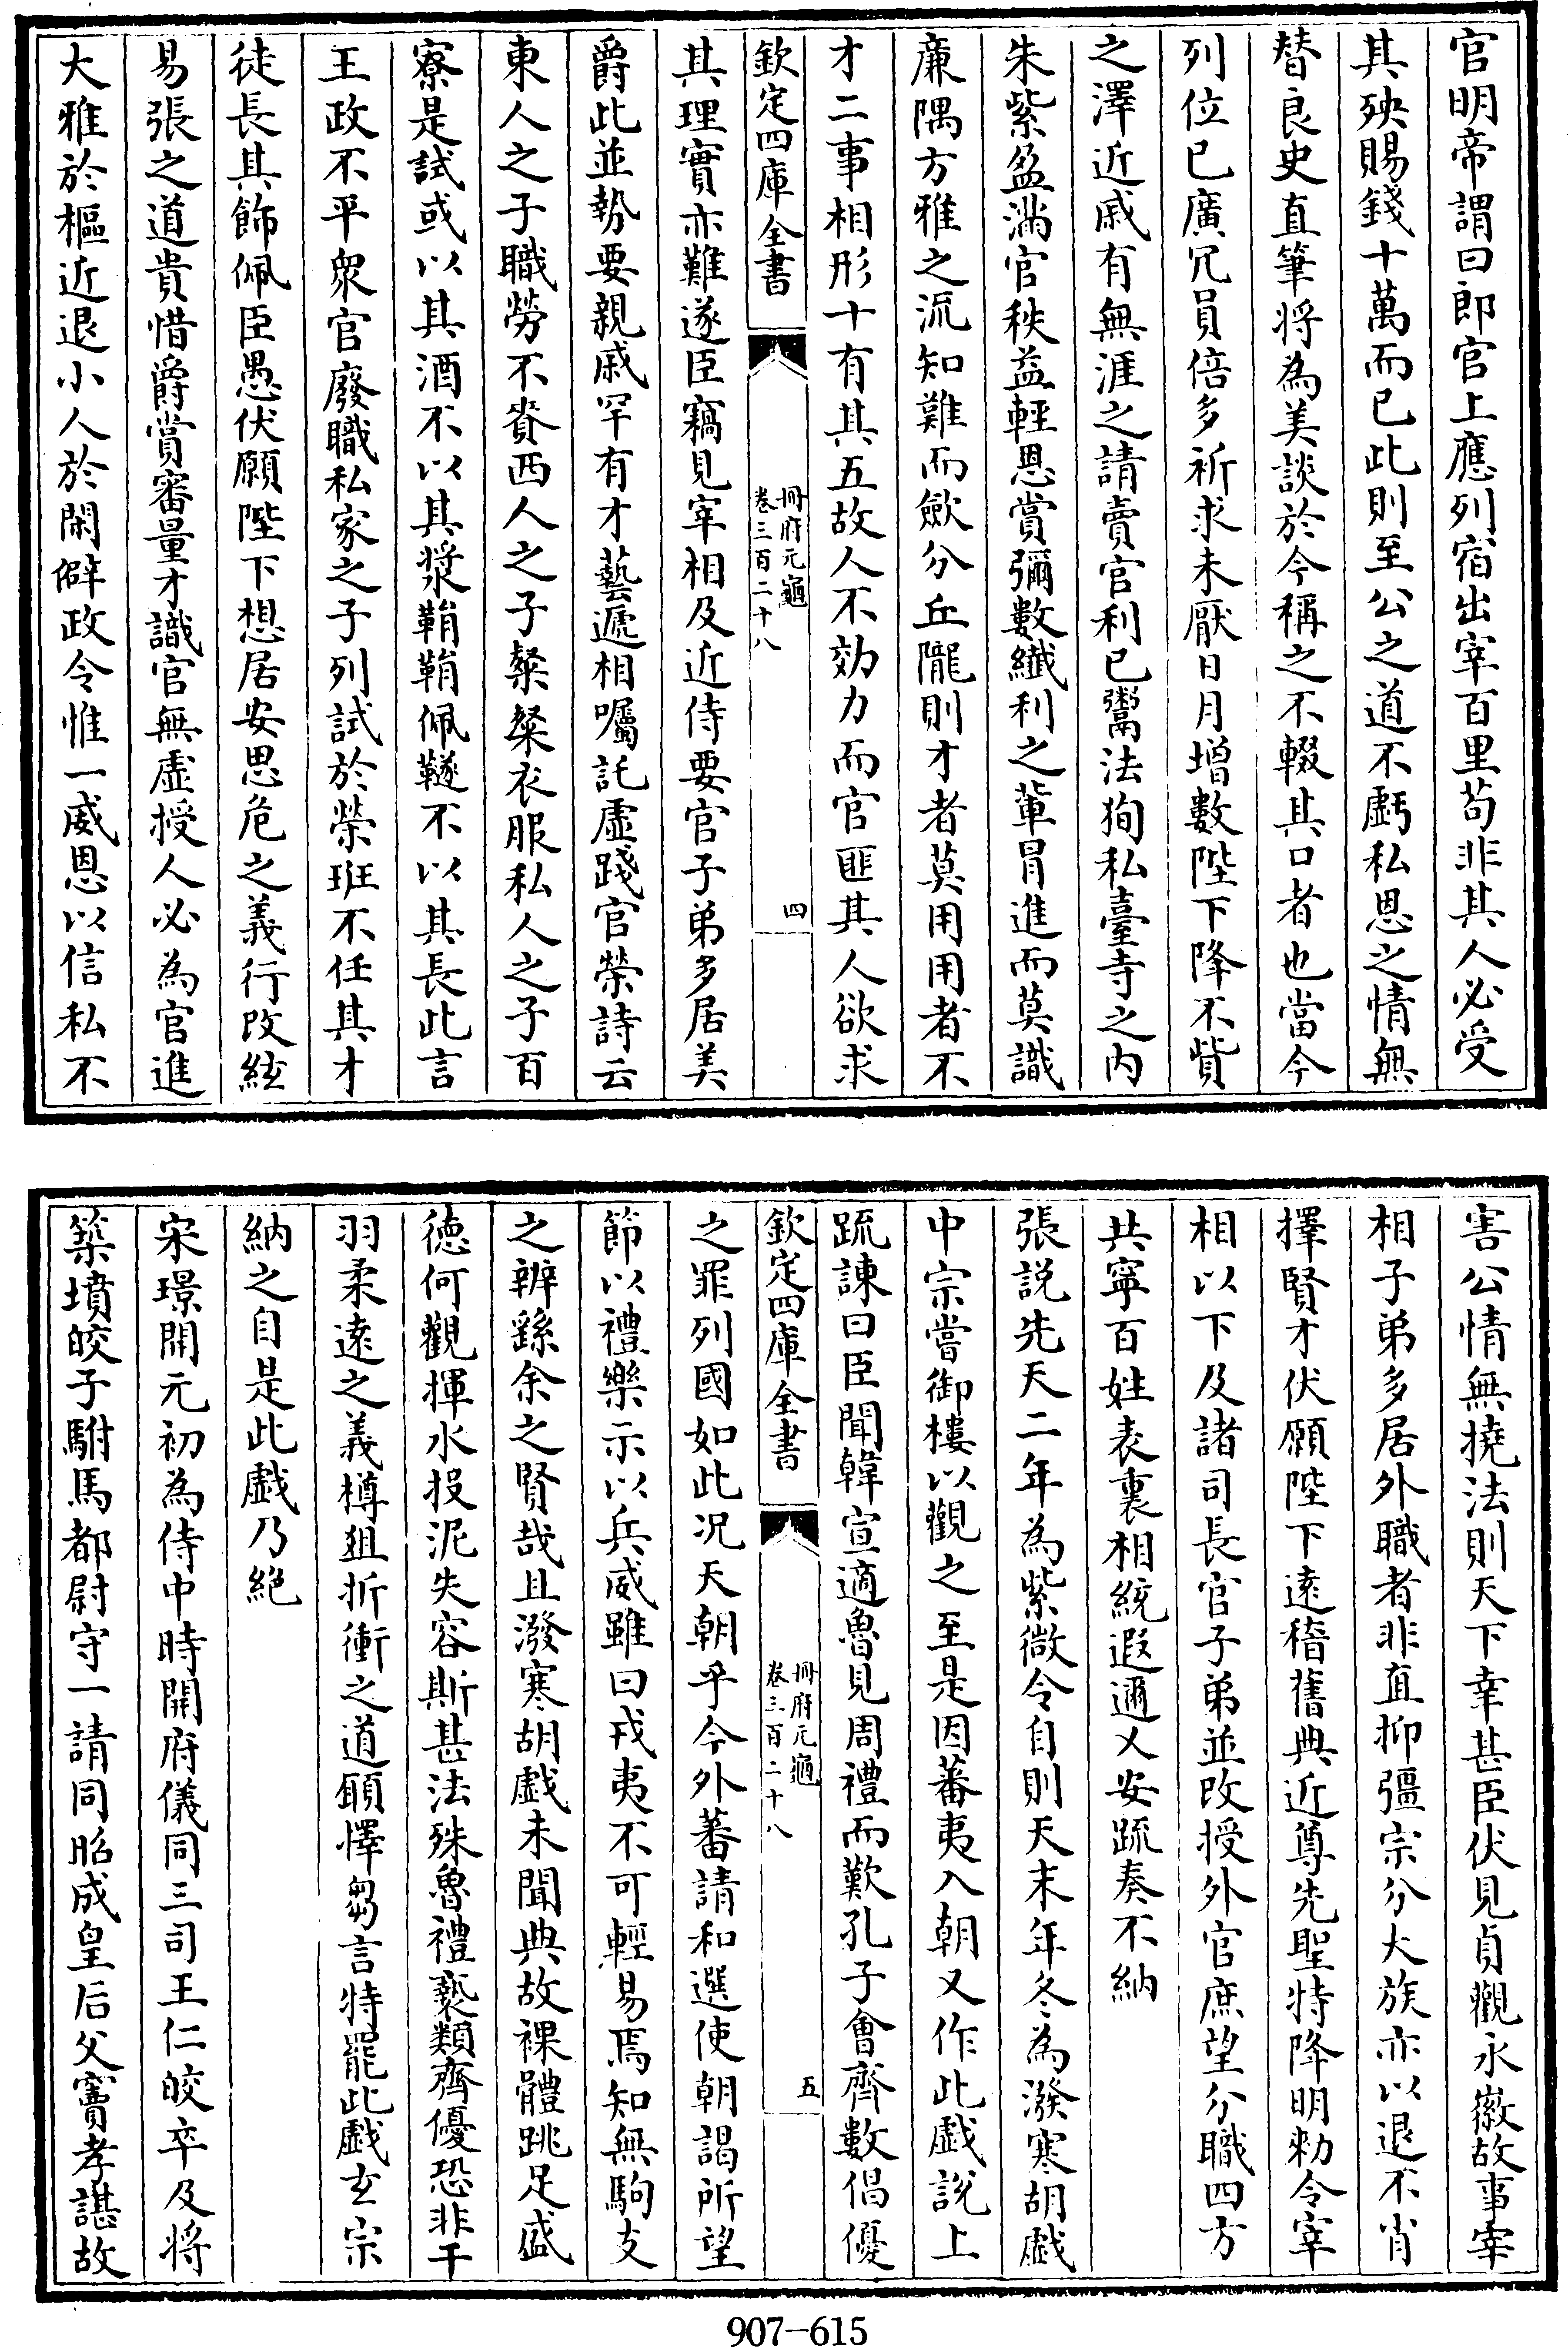 官明帝謂曰郎官上應列宿出宰百里苟非其人必受
其殃賜錢十萬而已此則至公之道不虧私恩之情無
替良史直筆将為美談於今稱之不輟其口者也當今
列位已廣冗員倍多祈求未厭日月增數陛下降不貲
之澤近戚有無涯之請賣官利已鬻法狥私臺寺之内
朱紫盈滿官秩益輕恩賞彌數纎利之輩冐進而莫識
廉隅方雅之流知難而歛分丘隴則才者莫用用者不
才二事相形十有其五故人不効力而官匪其人欲求
欽定四庫全書
冊府元龜
卷三百二十八
四
其理實亦難遂臣竊見宰相及近侍要官子弟多居美
爵此並勢要親戚罕有才藝遞相囑託虛踐官榮詩云
東人之子職勞不賚西人之子粲粲衣服私人之子百
寮是試或以其酒不以其漿鞙鞙佩鞢不以其長此言
王政不平衆官廢職私家之子列試於榮班不任其才
徒長其飾佩臣愚伏願陛下想居安思危之義行改絃
易張之道貴惜爵賞審量才識官無虛授人必為官進
大雅於樞近退小人於閑僻政令惟一威恩以信私不
害公情無撓法則天下幸甚臣伏見貞觀永徽故事宰
相子弟多居外職者非直抑彊宗分大族亦以退不肖
擇賢才伏願陛下逺稽舊典近尊先聖特降明勅令宰
相以下及諸司長官子弟並改授外官庶望分職四方
共寧百姓表裏相統遐邇乂安疏奏不納
張説先天二年為紫微令自則天末年冬為潑寒胡戲
中宗嘗御樓以觀之至是因蕃夷入朝又作此戲説上
疏諫曰臣聞韓宣適魯見周禮而歎孔子會齊數倡優
欽定四庫全書
冊府元龜
卷三百二十八
五
之罪列國如此况天朝乎今外蕃請和選使朝謁所望
節以禮樂示以兵威雖曰戎夷不可輕易焉知無駒支
之辨繇余之賢哉且潑寒胡戲未聞典故裸體跳足盛
德何觀揮水投泥失容斯甚法殊魯禮䙝類齊優恐非干
羽柔逺之義樽俎折衝之道願擇芻言特罷此戲玄宗
納之自是此戲乃絶
宋璟開元初為侍中時開府儀同三司王仁皎卒及将
築墳皎子駙馬都尉守一請同昭成皇后父竇孝諶故
907-615